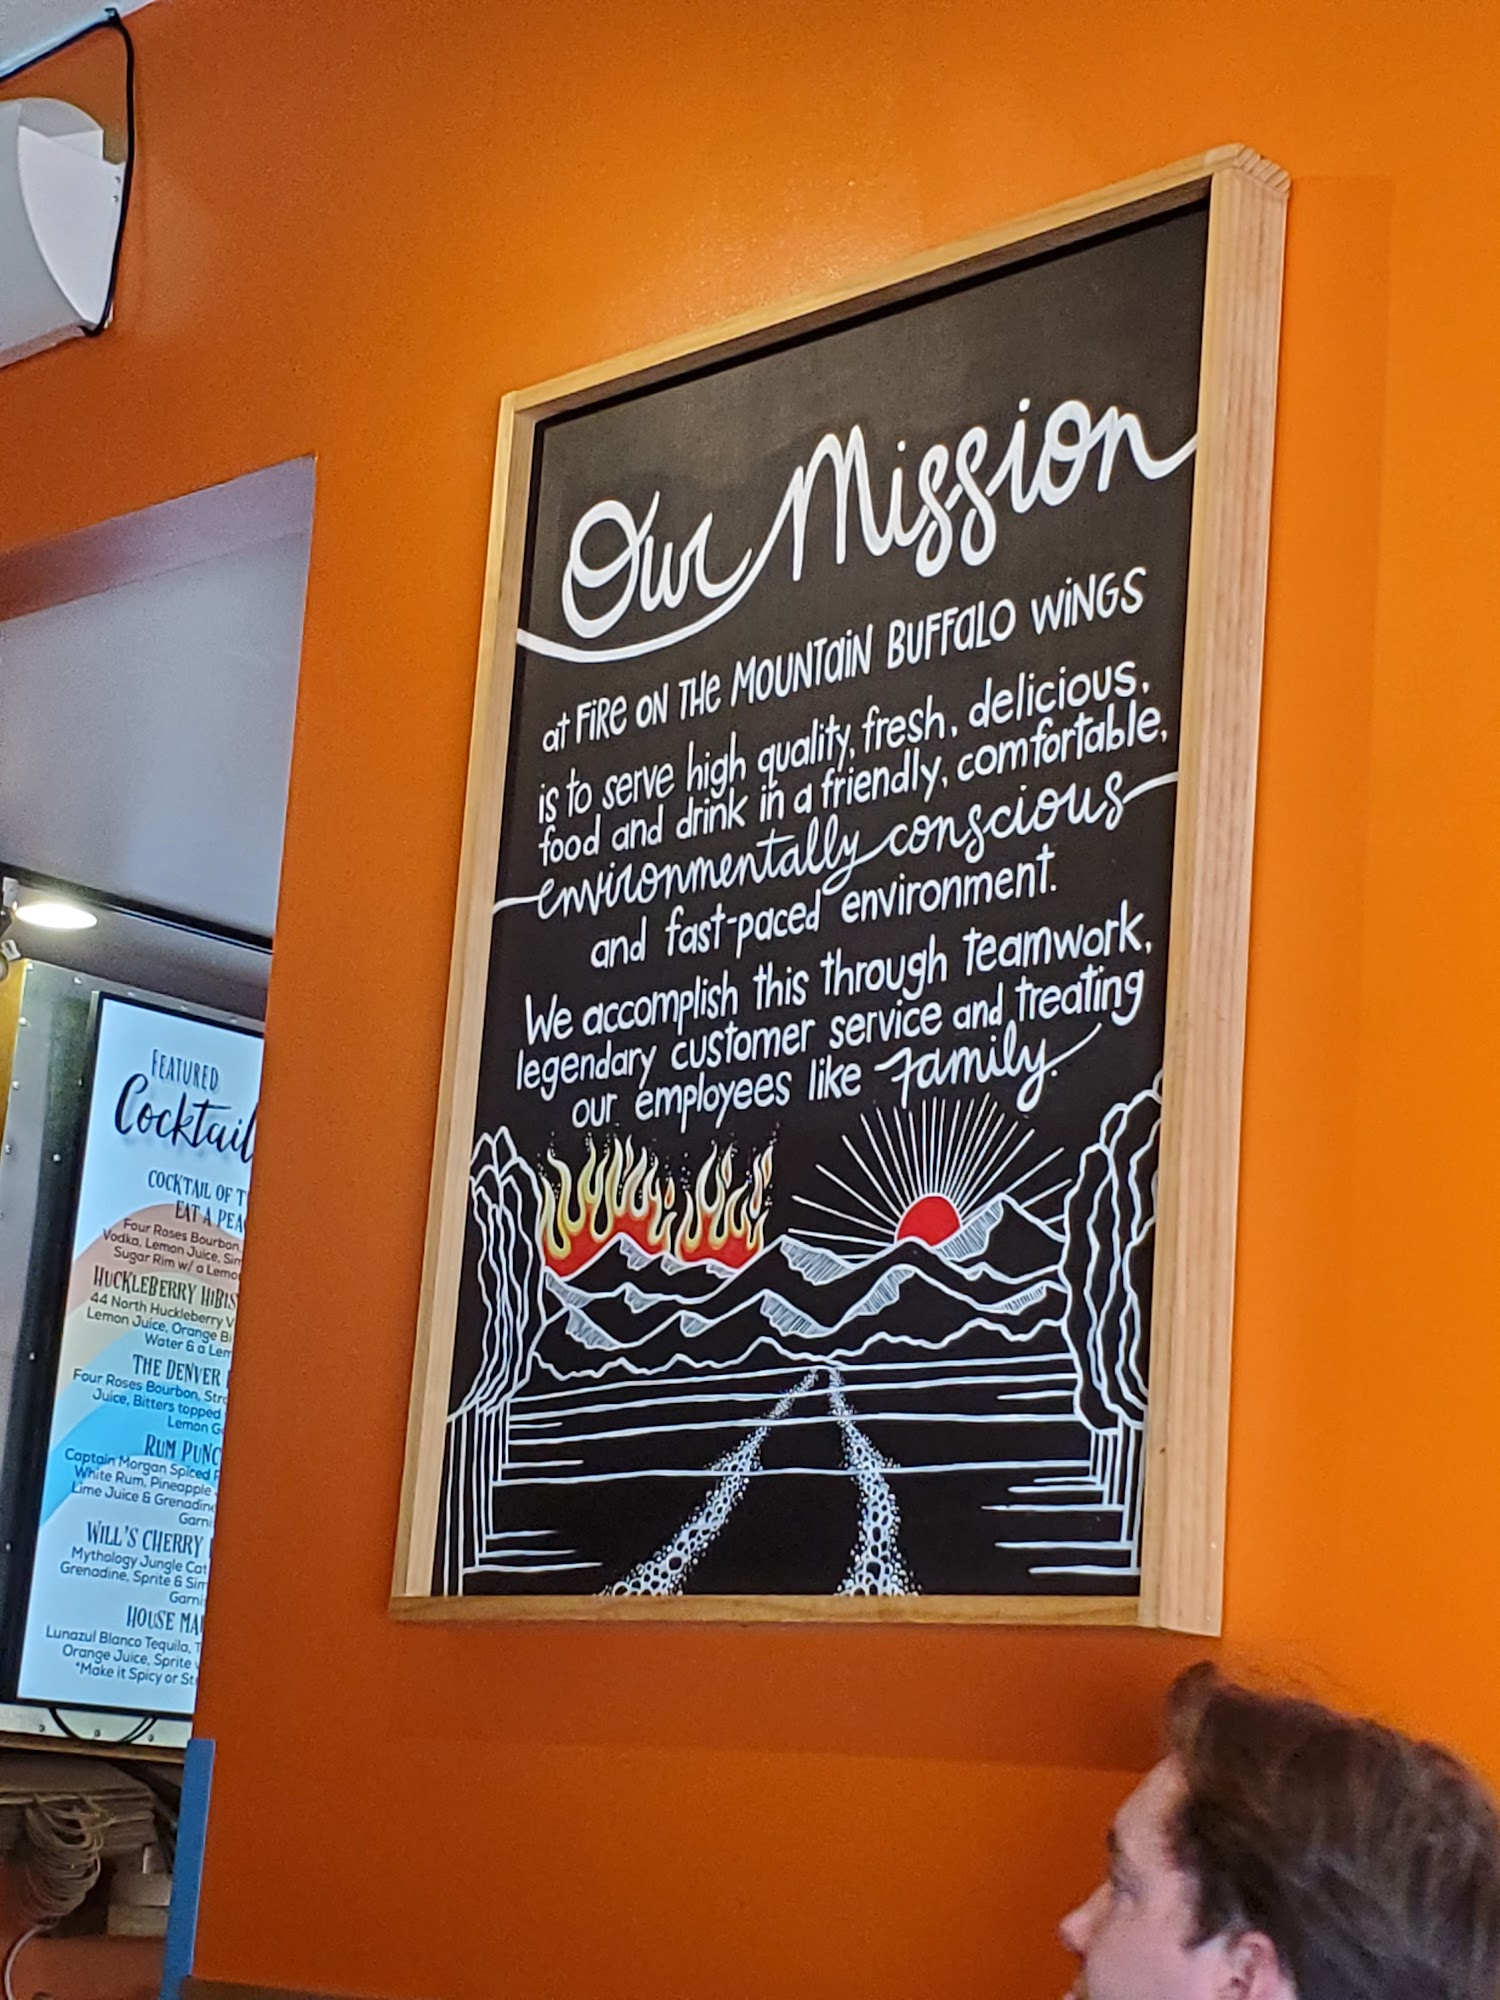 Our Mission
at FIRE ON THE MOUNTAIN BUFFALO WINGS
is to serve high quality, fresh, delicious,
food and drink in a friendly, comfortable,
environmentally conscious
and fast-paced environment.
We accomplish this through teamwork,
legendary customer service and treating
our employees like Family.
FEATURED
Cocktail
COCKTAIL OF T
EAT A PEA
Four Roses Bourbon,
Vodka, Lemon Juice, Sim
Sugar Rim w/ a Lemo
HUCKLEBERRY HIBIS
44 North Huckleberry V
Lemon Juice, Orange Bi
Water & a Lem
THE DENVER
Four Roses Bourbon, Stra
Juice, Bitters topped
Lemon Ga
RUM PUNC
Captain Morgan Spiced R
White Rum, Pineapple
Lime Juice & Grenadine
Garni
WILL'S CHERRY
Mythology Jungle Cat
Grenadine, Sprite & Sim
Garni
HOUSE MA
Lunazul Blanco Tequila, T
Orange Juice, Sprite
*Make it Spicy or St